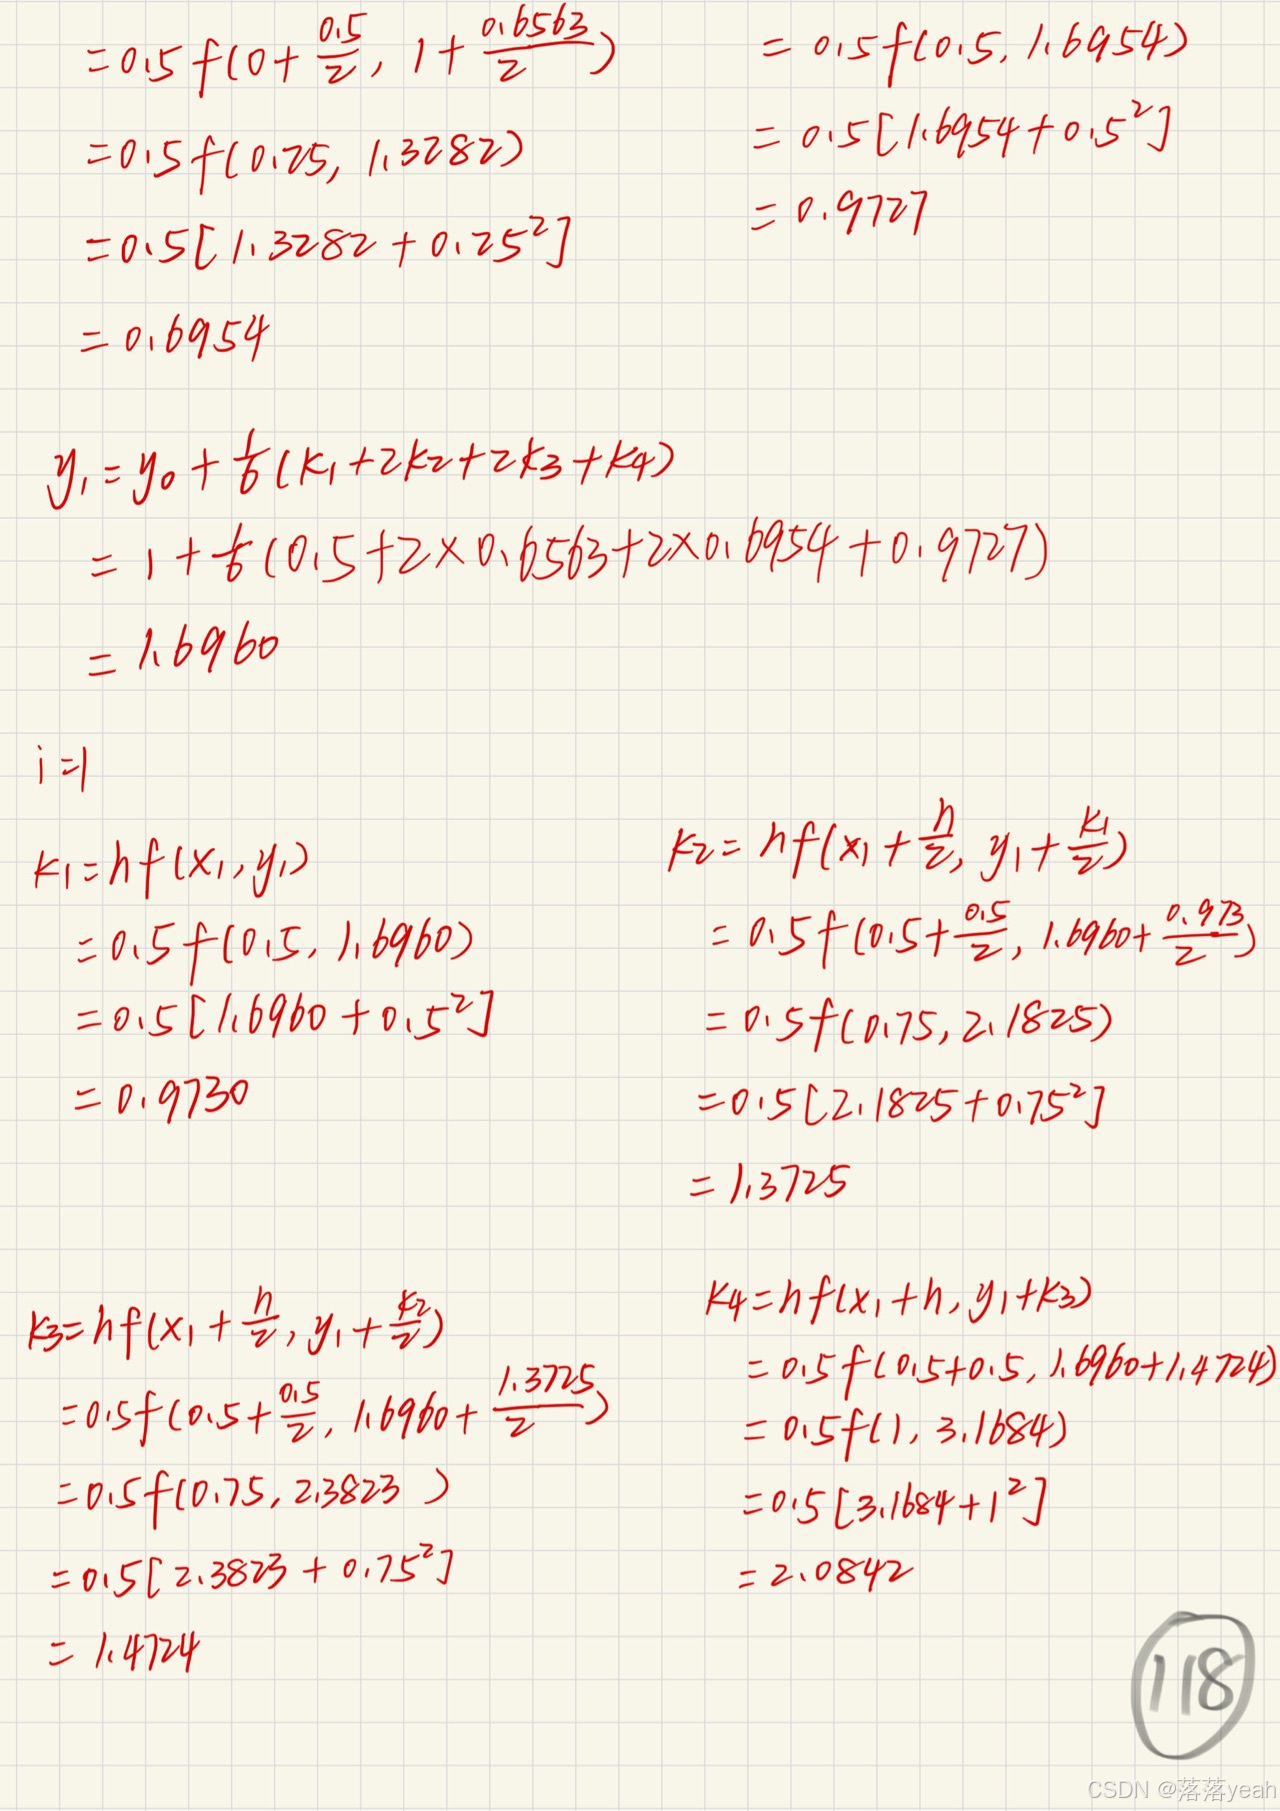 =0.5f(0+0.5/2, 1+0.6563/2)
=0.5f(0.25, 1.3282)
=0.5[1.3282+0.25²]
=0.6954
=0.5f(0.5, 1.6954)
=0.5[1.6954+0.5²]
=0.9727
y₁=y₀+1/6(k₁+2k₂+2k₃+k₄)
=1+1/6(0.5+2×0.6563+2×0.6954+0.9727)
=1.6960
i=1
k₁=hf(x₁,y₁)
=0.5f(0.5, 1.6960)
=0.5[1.6960+0.5²]
=0.9730
k₂=hf(x₁+h/2, y₁+k₁/2)
=0.5f(0.5+0.5/2, 1.6960+0.973/2)
=0.5f(0.75, 2.1825)
=0.5[2.1825+0.75²]
=1.3725
k₃=hf(x₁+h/2, y₁+k₂/2)
=0.5f(0.5+0.5/2, 1.6960+1.3725/2)
=0.5f(0.75, 2.3823)
=0.5[2.3823+0.75²]
=1.4724
k₄=hf(x₁+h, y₁+k₃)
=0.5f(0.5+0.5, 1.6960+1.4724)
=0.5f(1, 3.1684)
=0.5[3.1684+1²]
=2.0842
118
CSDN @落落yeah